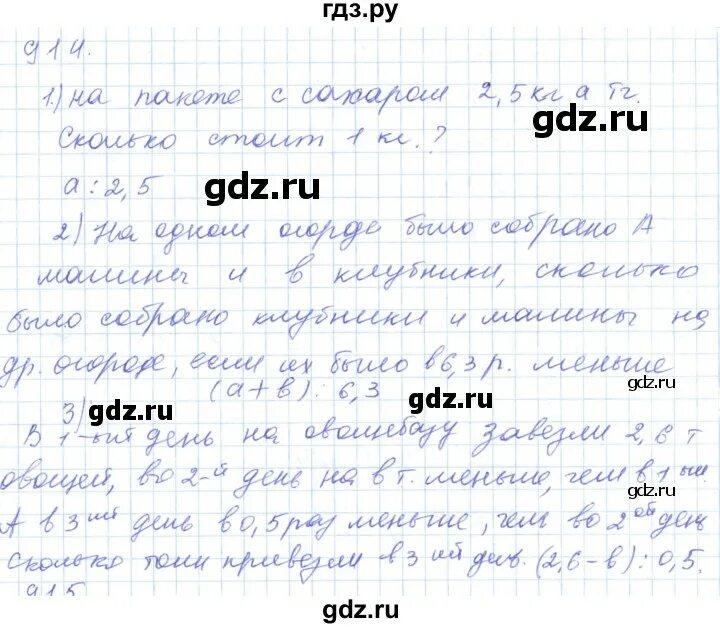 гдз.ру
914.
1.) На пакете с сахаром 2,5 кг а тг.
Сколько стоит 1 кг.?
gdz.ru
а : 2,5
gdz.ru
2) На одном огороде было собрано А
малины и в клубники, сколько
было собрано клубники и малины на
др. огороде, если их было в 6,3 р. меньше
gdz.ru
(а + в) : 6,3
3)
gdz.ru
gdz.ru
В 1-ый день на овощебазу завезли 2,6 т
овощей, во 2-й день на в т. меньше, чем в 1 ый.
gdz.ru
А в 3 ий день в 0,5 раз меньше, чем во 2 ой день
Сколько тонн привезли в 3 ий день. (2,6 - в) : 0,5.
915
gdz.ru